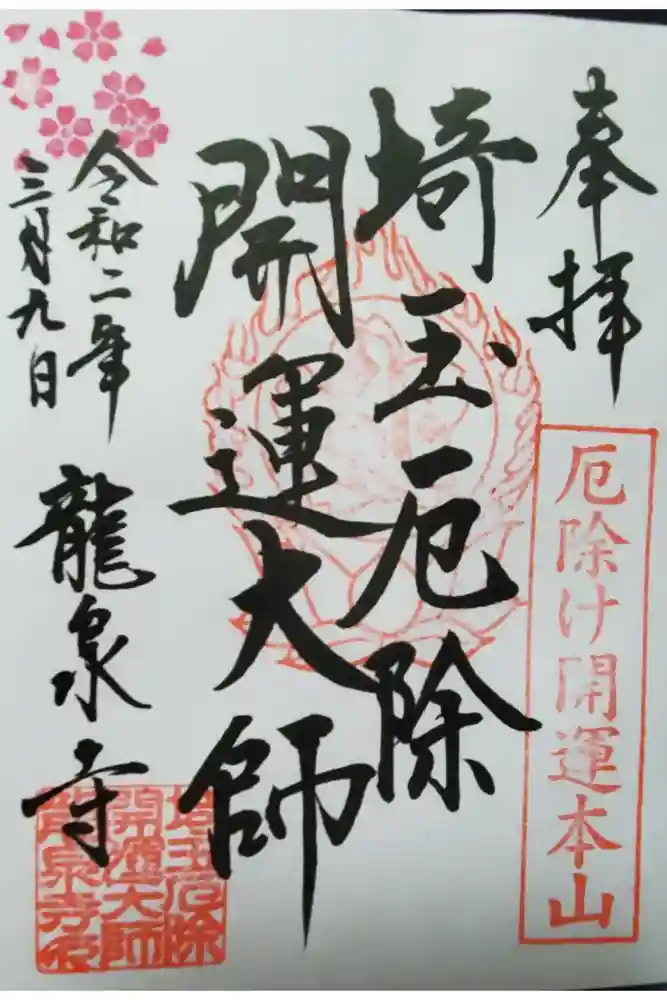 奉拝
厄除け開運本山
埼玉厄除
開運大師
令和二年
三月九日
龍泉寺
埼玉厄除
開運大師
龍泉寺